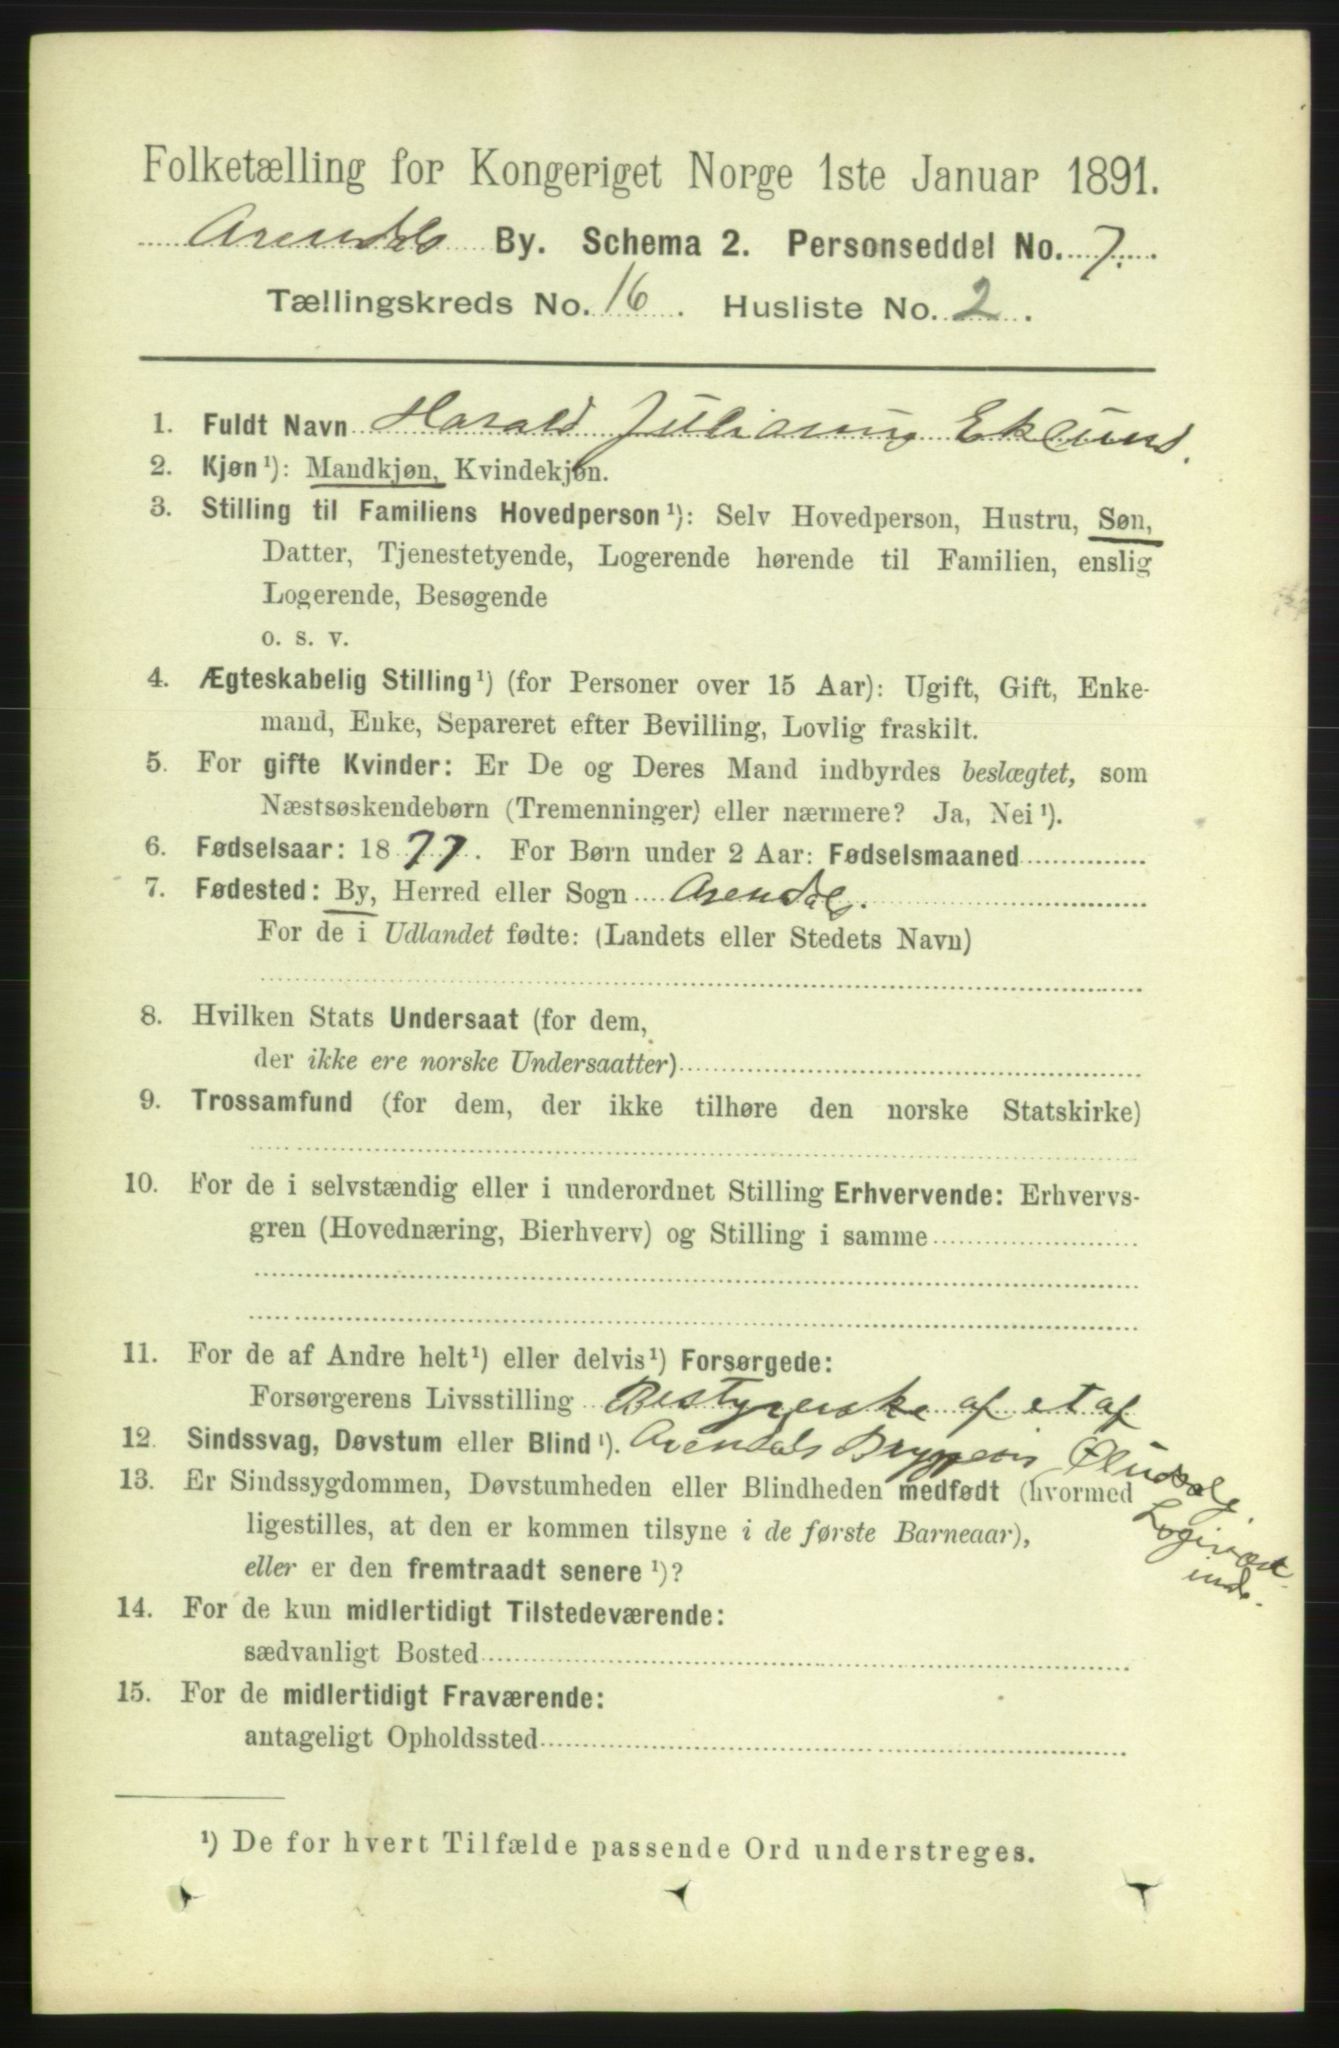 Folketælling for Kongeriget Norge 1ste Januar 1891.
Arendals By. Schema 2. Personseddel No. 7.
Tællingskreds No. 16. Husliste No. 2.
1. Fuldt Navn Harald Julianius Eklund.
2. Kjøn¹): Mandkjøn, Kvindekjøn.
3. Stilling til Familiens Hovedperson¹): Selv Hovedperson, Hustru, Søn,
Datter, Tjenestetyende, Logerende hørende til Familien, enslig
Logerende, Besøgende
o. s. v.
4. Ægteskabelig Stilling¹) (for Personer over 15 Aar): Ugift, Gift, Enke-
mand, Enke, Separeret efter Bevilling, Lovlig fraskilt.
5. For gifte Kvinder: Er De og Deres Mand indbyrdes beslægtet, som
Næstsøskendebørn (Tremenninger) eller nærmere? Ja, Nei¹).
6. Fødselsaar: 1877. For Børn under 2 Aar: Fødselsmaaned
7. Fødested: By, Herred eller Sogn Arendal.
For de i Udlandet fødte: (Landets eller Stedets Navn)
8. Hvilken Stats Undersaat (for dem,
der ikke ere norske Undersaatter)
9. Trossamfund (for dem, der ikke tilhøre den norske Statskirke)
10. For de i selvstændig eller i underordnet Stilling Erhvervende: Erhvervs-
gren (Hovednæring, Bierhverv) og Stilling i samme
11. For de af Andre helt¹) eller delvis¹) Forsørgede:
Forsørgerens Livsstilling Bestyrerske af et af
12. Sindssvag, Døvstum eller Blind¹). Arendals Bryggeris Øludsalg,
13. Er Sindssygdommen, Døvstumheden eller Blindheden medfødt (hvormed
Logivært-
ligestilles, at den er kommen tilsyne i de første Barneaar),
inde.
eller er den fremtraadt senere¹)?
14. For de kun midlertidigt Tilstedeværende:
sædvanligt Bosted
15. For de midlertidigt Fraværende:
antageligt Opholdssted
¹) De for hvert Tilfælde passende Ord understreges.